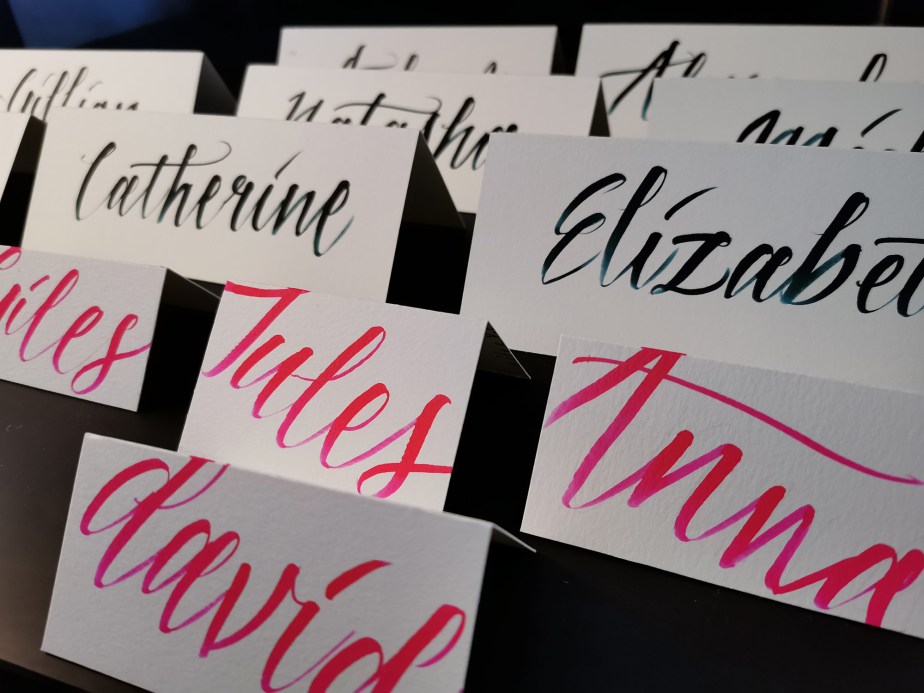 Gillian
Natasha
Catherine
Elizabet
Giles
Jules
Anna
david